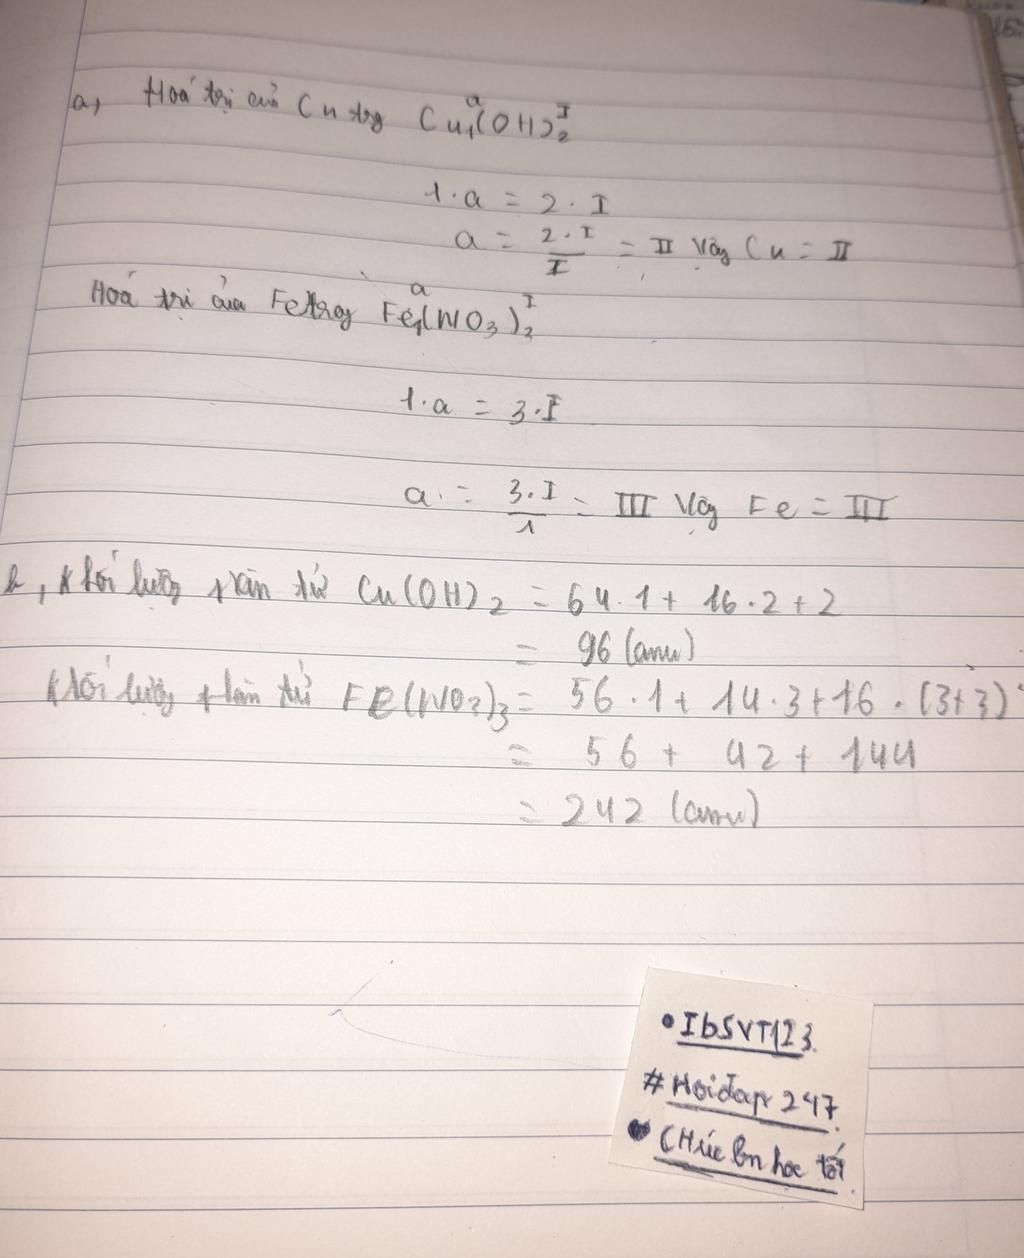 a, Hoá trị của Cu trg Cu₁ᵃ(OH)₂ᴵ
1.a = 2.I
a = 2.I/I = II Vậy Cu = II
Hoá trị của Fe trog Fe₁ᵃ(NO₃)₂ᴵ
1.a = 3.I
a = 3.I/1 = III Vậy Fe = III
b, Khối lượng phân tử Cu(OH)₂ = 64.1 + 16.2 + 2
= 96 (amu)
Khối lượng phân tử FE(NO₃)₃ = 56.1 + 14.3 + 16.(3+3)
= 56 + 42 + 144
= 242 (amu)
• IbSVT123.
# Hoidap 247.
♥ CHúc bn học tốt.